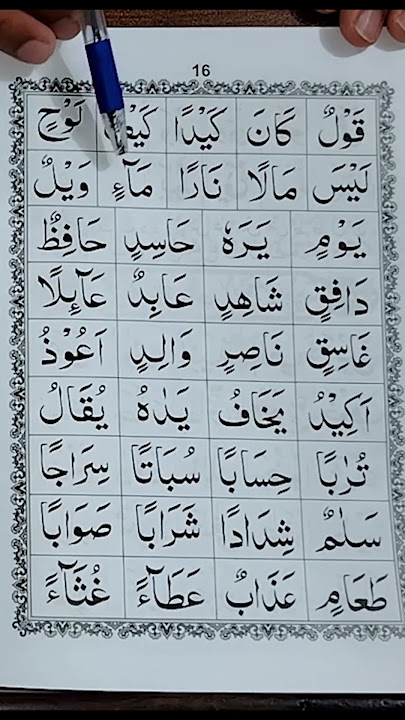 16
قَوْلٌ كَانَ كَيْدًا كَيْفَ لَوْحٍ
لَيْسَ مَالًا نَارًا مَآءٍ وَيْلٌ
يَوْمٍ يَرَهٗ حَاسِدٍ حَافِظٌ
دَافِقٍ شَاهِدٍ عَابِدٌ عَآئِلًا
غَاسِقٍ نَاصِرٍ وَالِدٍ اَعُوْذُ
اَكِيْدُ يَخَافُ يَدٰهُ يُقَالُ
تُرٰبًا حِسَابًا سُبَاتًا سِرَاجًا
سَلٰمٌ شِدَادًا شَرَابًا صَوَابًا
طَعَامٍ عَذَابٌ عَطَآءً غُثَآءً